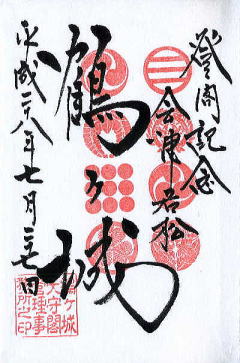 登閣記念
会津若松
鶴ヶ城
平成二十八年七月二十七日
鶴ヶ城
天守閣
管理事
務所之印